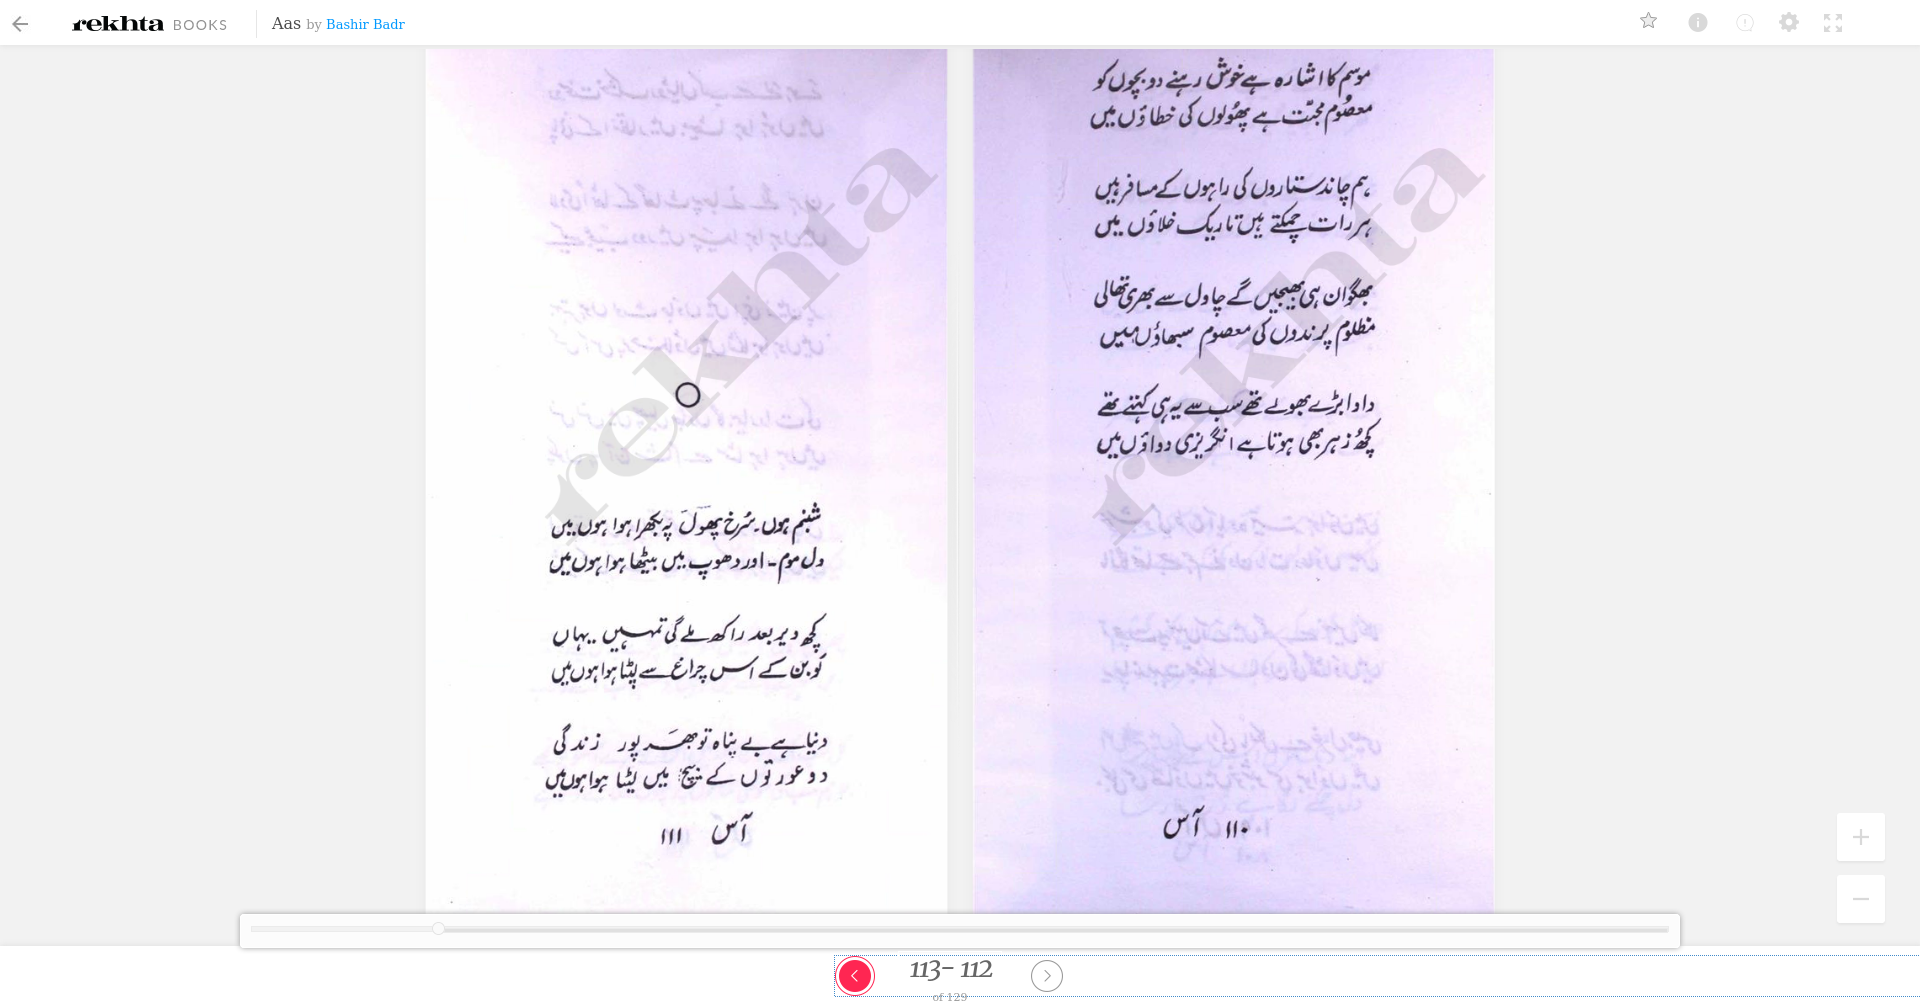 rekhta BOOKS
Aas by Bashir Badr
موسم کا اشارہ ہے خوش رہنے دو بچوں کو
معصُوم محبّت ہے پھُولوں کی خطاؤں میں
ہم چاند ستاروں کی راہوں کے مسافر ہیں
ہر رات چمکتے ہیں تاریک خلاؤں میں
بھگوان ہی بھیجیں گے چاول سے بھری تھالی
مظلوم پرندوں کی معصوم سبھاؤں میں
دادا بڑے بھولے تھے سب سے یہ ہی کہتے تھے
کچھُ زہر بھی ہوتا ہے انگریزی دواؤں میں
۱۱۰ آس
rekhta
شبنم ہوں۔ سُرخ پھول پہ بکھرا ہوا ہوں میں
دل موم۔ اور دھوپ میں بیٹھا ہوا ہوں میں
کچھ دیر بعد راکھ ملے گی تمہیں۔ یہاں
لَو بن کے اس چراغ سے لپٹا ہوا ہوں میں
دنیا ہے بے پناہ تو بھرپور زندگی
دو عورتوں کے بیچ میں لیٹا ہوا ہوں میں
آس ۱۱۱
rekhta
113- 112
of 129